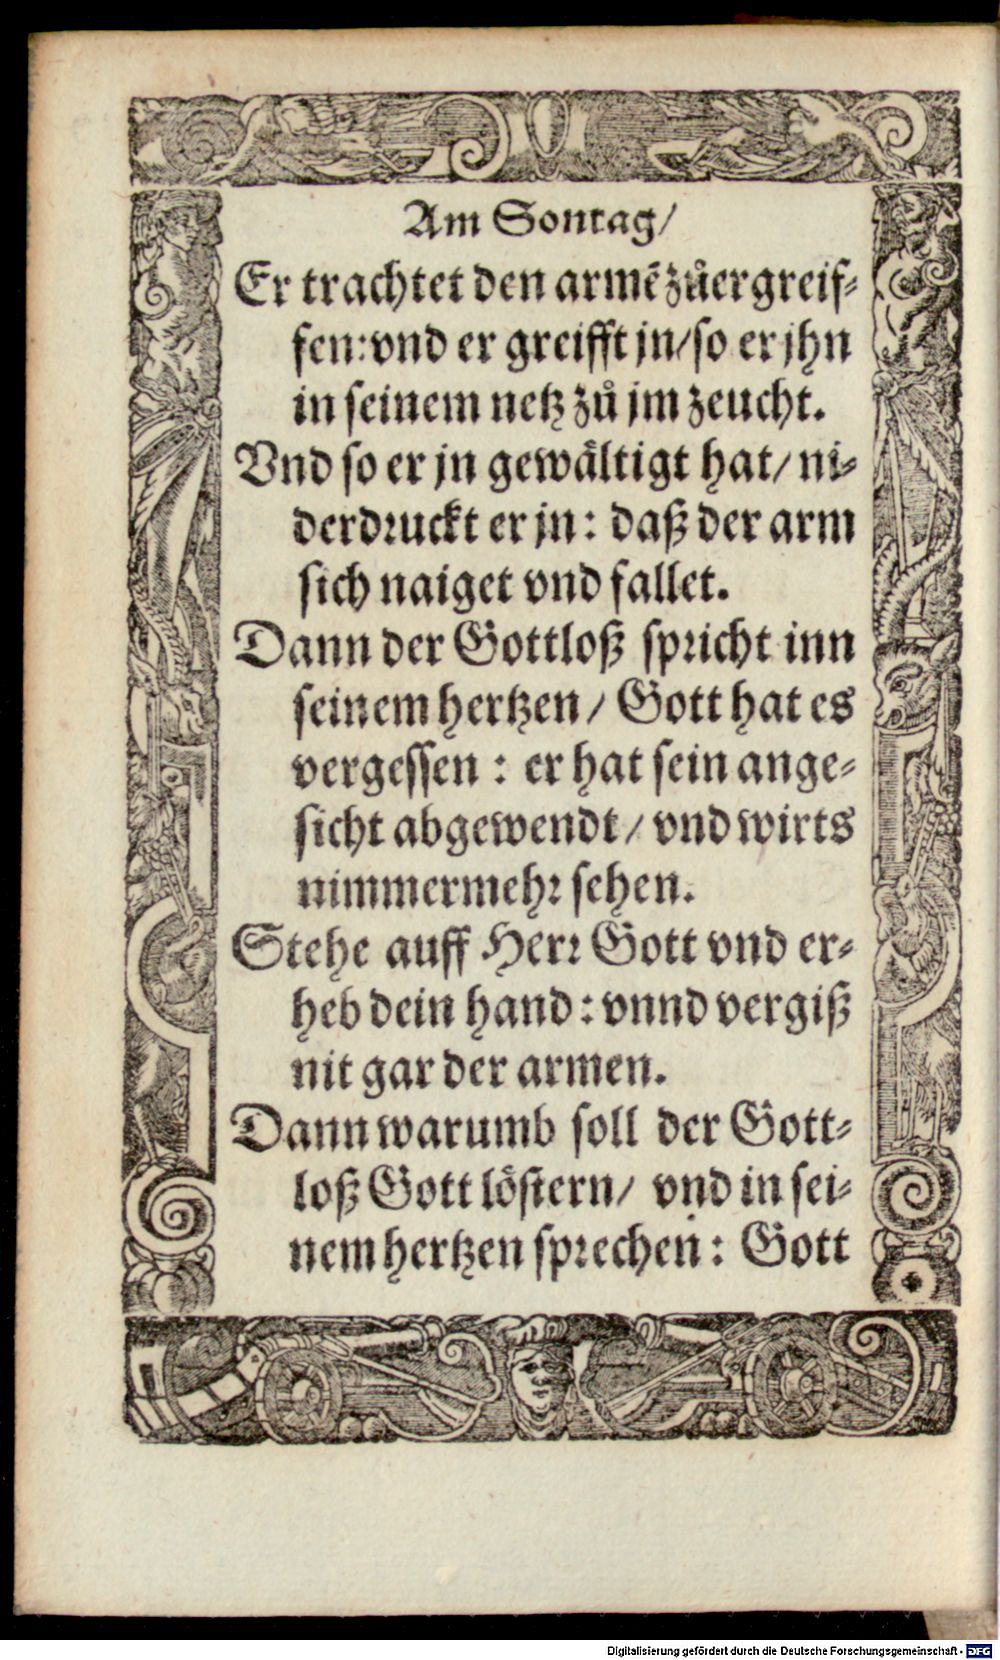 Am Sontag/
Er trachtet den armẽ zůergreif-
fen: vnd er greifft jn/ so er jhn
in seinem netz zů jm zeucht.
Vnd so er jn gewåltigt hat/ ni-
derdruckt er jn: daß der arm
sich naiget vnd fallet.
Dann der Gottloß spricht inn
seinem hertzen/ Gott hat es
vergessen: er hat sein ange-
sicht abgewendt/ vnd wirts
nimmermehr sehen.
Stehe auff Herr Gott vnd er-
heb dein hand: vnnd vergiß
nit gar der armen.
Dann warumb soll der Gott-
loß Gott löstern/ vnd in sei-
nem hertzen sprechen: Gott
Digitalisierung gefördert durch die Deutsche Forschungsgemeinschaft - DFG